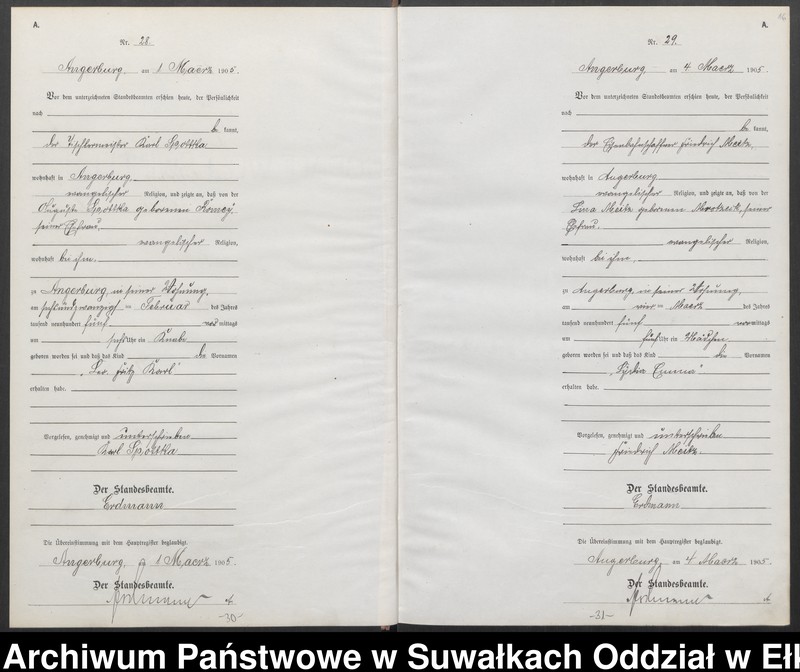 A.
Nr. 28.
Angerburg, am 1 Maerz 1905.
Vor dem unterzeichneten Standesbeamten erschien heute, der Persönlichkeit
nach
be kannt,
der Tischlermeister Karl Spottka
wohnhaft in Angerburg
evangelischer Religion, und zeigte an, daß von der
Auguste Spottka geborenen
seiner Ehefrau
evangelischer Religion,
wohnhaft bei ihm,
zu Angerburg, in seiner Wohnung,
am Februar des Jahres
tausend neunhundert fünf mittags
um Uhr ein Knabe
geboren worden sei und daß das Kind den Vornamen
"Leo Fritz Karl"
erhalten habe.
Vorgelesen, genehmigt und unterschrieben
Karl Spottka
Der Standesbeamte.
Erdmann
Die Übereinstimmung mit dem Hauptregister beglaubigt.
Angerburg, 1 Maerz 1905.
Der Standesbeamte.
Erdmann
-30-
16
A.
Nr. 29.
Angerburg am 4 Maerz 1905.
Vor dem unterzeichneten Standesbeamten erschien heute, der Persönlichkeit
nach
be kannt,
der Eisenbahnschaffner Friedrich Meitz,
wohnhaft in Angerburg
evangelischer Religion, und zeigte an, daß von der
Lina Meitz geborenen Mrotzek, seiner
Ehefrau.
evangelischer Religion,
wohnhaft bei ihm,
zu Angerburg, in seiner Wohnung,
am vier = Maerz des Jahres
tausend neunhundert fünf vormittags
um fünf Uhr ein Mädchen
geboren worden sei und daß das Kind den Vornamen
"Lydia Emma"
erhalten habe.
Vorgelesen, genehmigt und unterschrieben
Friedrich Meitz.
Der Standesbeamte.
Erdmann
Die Übereinstimmung mit dem Hauptregister beglaubigt.
Angerburg, am 4 Maerz 1905.
Der Standesbeamte.
Erdmann
-31-
Archiwum Państwowe w Suwałkach Oddział w Eł